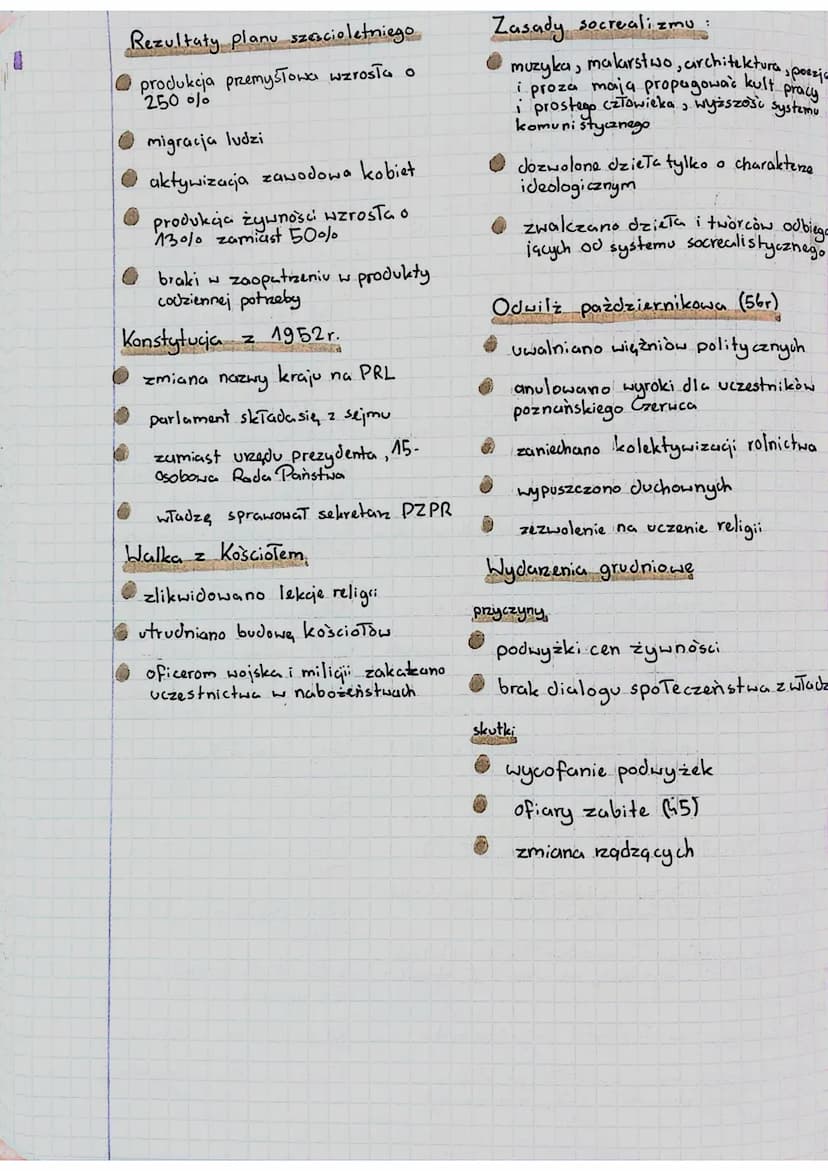 Rezultaty planu sześcioletniego
produkcja przemysłowa wzrosła o
250 %
migracja ludzi
aktywizacja zawodowa kobiet
produkcja żywności wzrosła o
13% zamiast 50%
braki w zaopatrzeniu w produkty
codziennej potrzeby
Konstytucja z 1952r.
zmiana nazwy kraju na PRL
parlament składa się z sejmu
zamiast urzędu prezydenta, 15-
osobowa Rada Państwa
władzę sprawował sekretarz PZPR
Walka z Kościołem
zlikwidowano lekcje religii
utrudniano budowę kościołów
oficerom wojska i milicji zakazano
uczestnictwa w nabożeństwach
Zasady socrealizmu :
muzyka, malarstwo, architektura, poezja
i proza mają propagować kult pracy
i prostego człowieka, wyższość systemu
komunistycznego
dozwolone dzieła tylko o charakterze
ideologicznym
zwalczano dzieła i twórców odbiega
jących od systemu socrealistycznego
Odwilż październikowa (56r)
uwalniano więźniów politycznych
anulowano wyroki dla uczestników
poznańskiego Czerwca
zaniechano kolektywizacji rolnictwa
wypuszczono duchownych
zezwolenie na uczenie religii
Wydarzenia grudniowe
przyczyny
podwyżki cen żywności
brak dialogu społeczeństwa z władz
skutki
wycofanie podwyżek
ofiary zabite (45)
zmiana rządzących